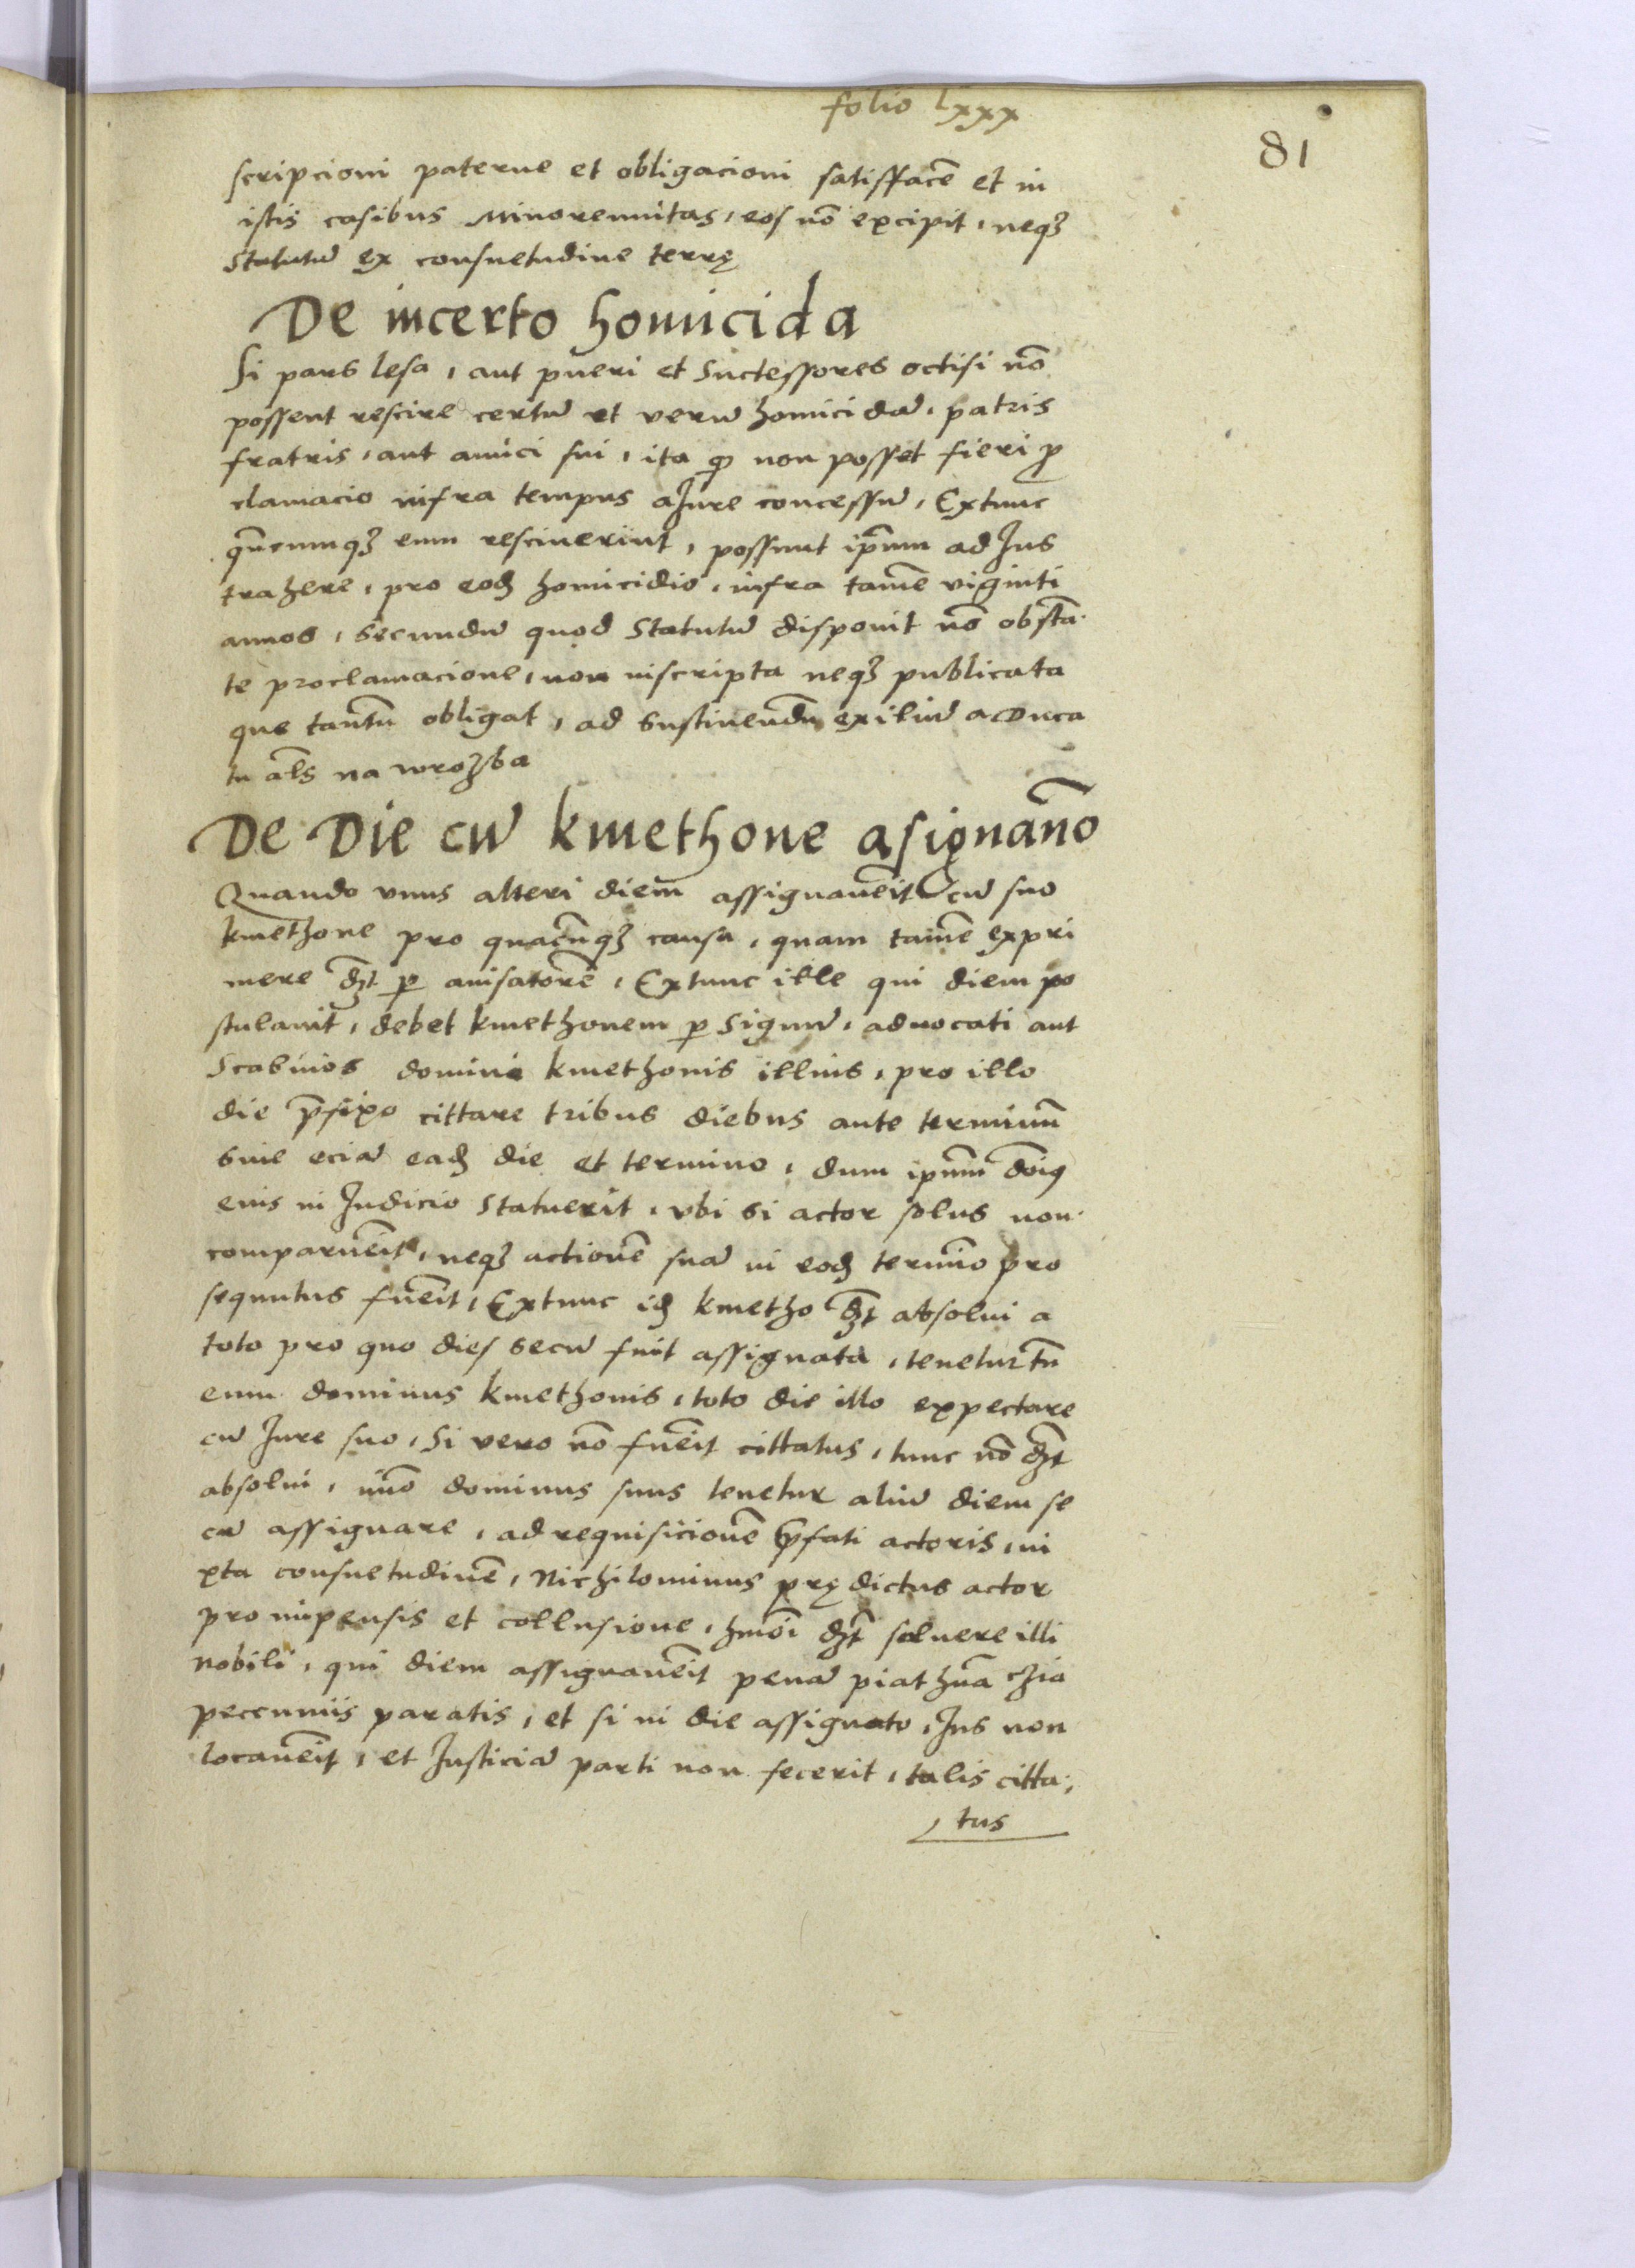 folio lxxx
81
scripcioni paterne et obligacioni satisffacē et in
istis casibus Minorennitas, eos nō excipit, neqꝫ
Statutū ex consuetudine terrę
De incerto homicida
Si pars lesa, aut pueri et Suctessores octisi nō
possent rescire certū et verū homicidā, patris
fratris, aut amici sui, ita ꝙ non posset fieri ꝓ
clamacio infra tempus a Jure concessū, Extunc
qn̄cumqꝫ eum resciuerint, possunt ip̄um ad Jus
trahere, pro eodꝫ homicidio, infra tamē viginti
annos, Secundū quod Statutū disponit nō obstā
te proclamacione, non inscripta neqꝫ publicata
que tantū obligat, ad Sustinendū exiliū a Duca
tu al̄s na wrożba
De Die cū kmethone asignān̄o
Quando vnus alteri diem assignauēit cū suo
kmethone pro quacūqꝫ causa, quam tamē expri
mere dꝫt ꝑ auisatorē, Extunc ille qui diem po
stulauit, debet kmethonem ꝑ Signū, aduocati aut
Scabinos domini kmethonis illius, pro illo
die p̄fixo cittare tribus diebus ante terminū
Siue eciā eadꝫ die et termino, dum ipsum dōiꝰ
eius in Judicio Statuerit, vbi si actor solus non
comparuēit, neqꝫ actionē suā in eodꝫ termīo pro
sequutus fuēit, Extunc idꝫ kmetho dꝫt absolui a
toto pro quo dies secū fuit assignata, tenetur tn̄
eum dominus kmethonis, toto die illo expectare
cū Jure suo, Si vero nō fuēit cittatus, tunc nō dꝫt
absolui, imō dominus suus tenetur aliū diem se
cū assignare, ad requisicionē p̄fati actoris, iu
xta consuetudinē, Nichilominus prędictus actor
pro impensis et collusione, hmōi dꝫt soluere illi
nobili, qui diem assignauēit penā piathnā chia
peccuniis paratis, et si in die assignato, Jus non
locauēit, et Justiciā parti non fecerit, talis citta,
tus